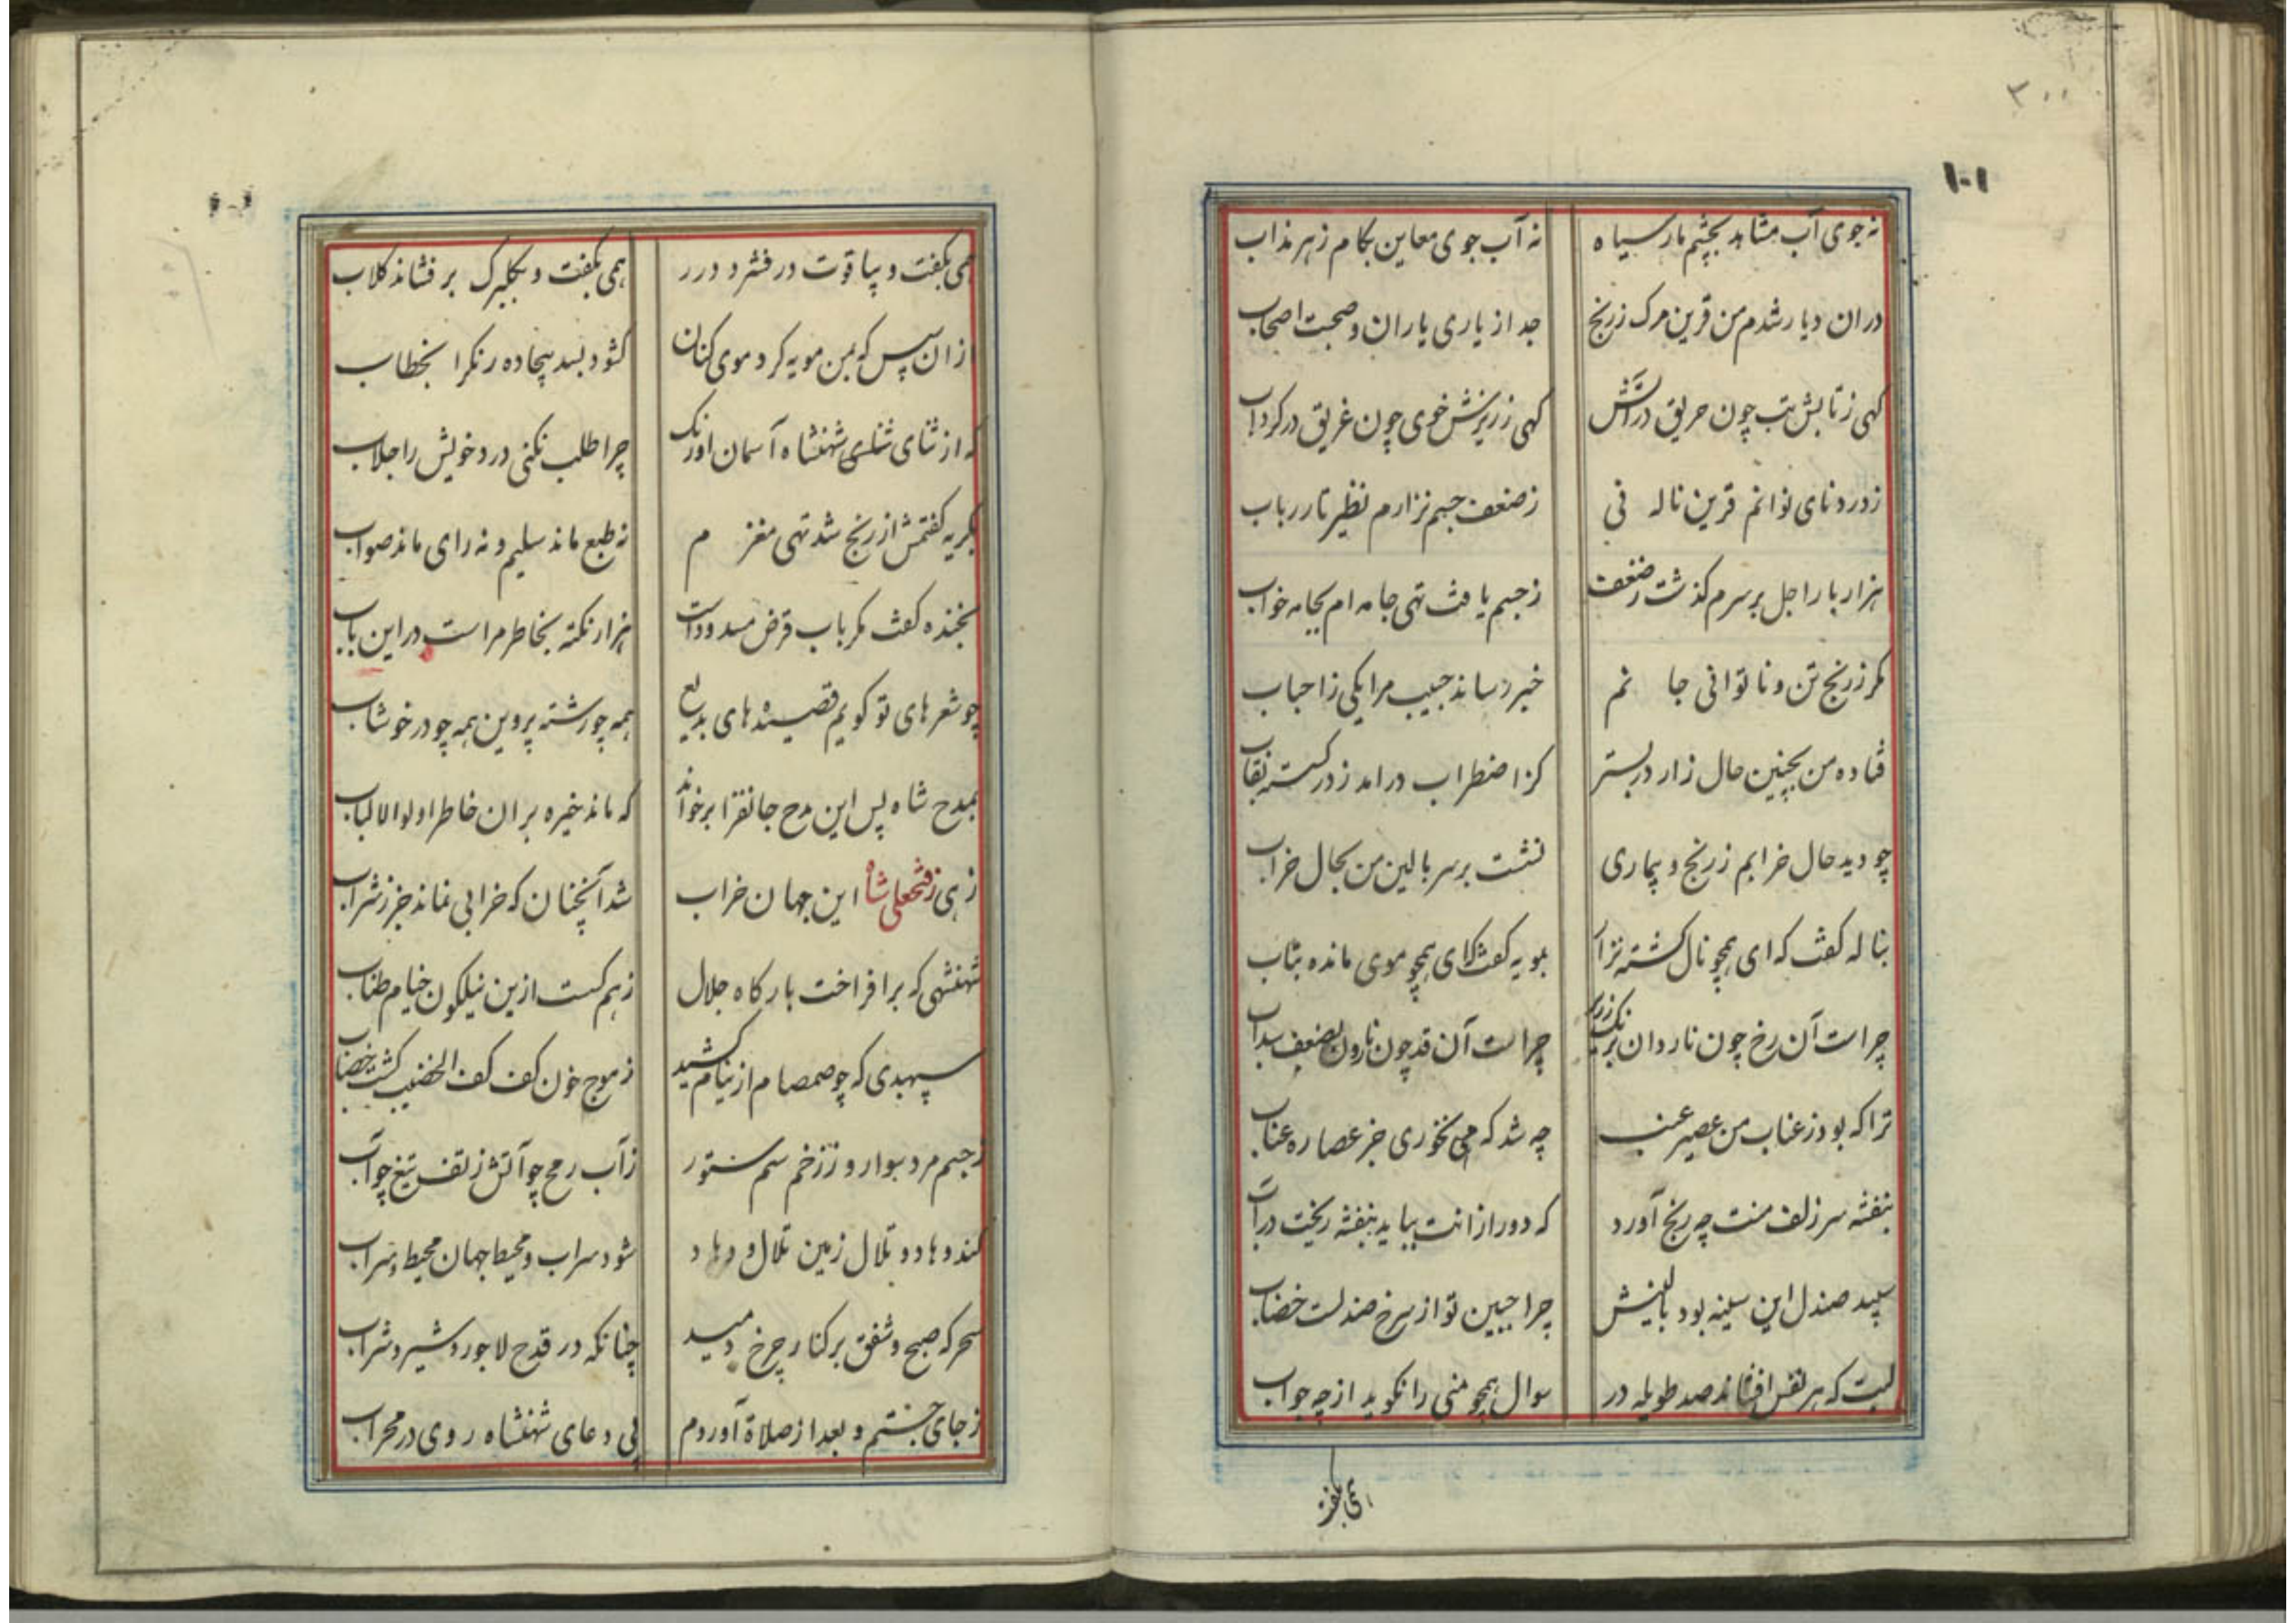 ۳۰۰
۱۰۱
نه جوی آب مشاهد بچشم مار سیاه نه آب جوی معاین بکام زهر مذاب
دران دیار شدم من قرین مرک زرنج جد از یاری یاران و صحبت اصحاب
کهی زتابش تب چون حریق در آتش کهی زریزش خوی چون غریق در کرداب
زدرد نای نوانم قرین ناله نی زضعف جسم نزارم نظیر تار رباب
هزار بار اجل بر سرم کذشت زضعف زجسم یافت تهی جامه ام بجامه خواب
مکر زرنج تن و ناتوانی جانم خبر رساند حبیب مرا یکی زاحباب
فتاده من بچنین حال زار در بستر کز اضطراب درامد زدر کسسته نقاب
چو دید حال خرابم زرنج و بیماری نشست بر سر بالین من بحال خراب
بناله کفت که ای همچو نال کشته نزار بمویه کفت کای همچو موی مانده بتاب
چراست آن رخ چون ناردان برنک زریر چراست آن قد چون نارون بضعف سداب
ترا که بود زعناب من عصیر عنب چه شد که می نخوری جز عصاره عناب
بنفشه سر زلف منت چه رنج آورد که دور ازانت بباید بنفشه ریخت در آب
سپید صندل این سینه بود بالینش چرا جبین تو از سرخ صندلست خضاب
لبت که هر نفس افشاند صد طویله در سوال همچو منی را نکوید از چه جواب
همی بکفت
همی بکفت و بیاقوت در فشرد درر همی بکفت و بکلبرک بر فشاند کلاب
ازان سپس که بمن مویه کرد موی کنان کشود بسد بیجاده رنکرا بخطاب
که از ثنای شهنشاه آسمان اورنک چرا طلب نکنی درد خویش را جلاب
بکریه کفتمش از رنج شد تهی مغزم نه طبع ماند سلیم و نه رای ماند صواب
بخنده کفت مکر باب قرض مسدودست هزار نکته بخاطر مراست در این باب
چو شعرهای تو کویم قصیدهای بدیع همه چو رشته پروین همه چو در خوشاب
بمدح شاه پس این مدح جانفزا برخواند که ماند خیره بران خاطر اولوا الالباب
زهی زفتحعلی شاه این جهان خراب شد آنچنان که خرابی نماند جز زشراب
شهنشهی که برافراخت بارکاه جلال زهم کسست ازین نیلکون خیام طناب
سپهبدی که چو صمصام از نیام کشید زموج خون کف کف الخضیب کشت خضاب
زجسم مرد سوار و ززخم سم ستور زآب رمح چو آتش زتف تیغ چو آب
کند وهاد و تلال زمین تلال و وهاد شود سراب و محیط جهان محیط و سراب
سحر که صبح و شفق بر کنار چرخ دمید چنانکه در قدح لاجورد شیر و شراب
زجای جستم و بعد از صلاة آوردم پی دعای شهنشاه روی در محراب